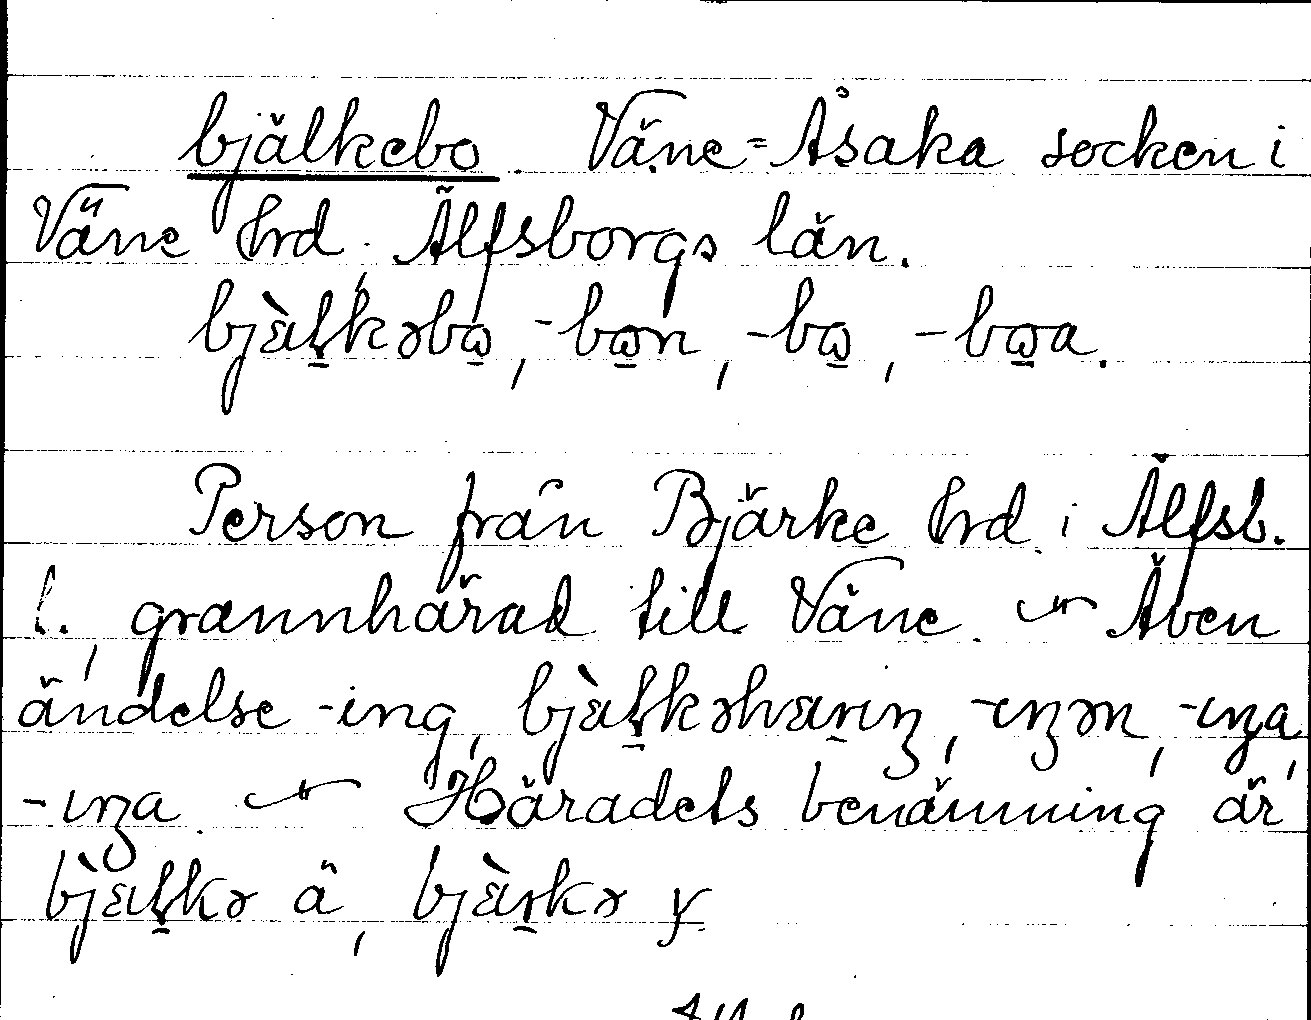 bjälkebo. Väne-Åsaka socken i
Väne hrd, Älfsborgs län.
bjὲɽkəbɷ, -bɷn, -bɷ, -bɷa.
Person från Bjärke hrd i Älfsb.
l., grannhärad till Väne. ~ Även
ändelse -ing, bjὲɽkəhærıŋ, -ıŋən, -ıŋa,
-ıŋa. ~ Häradets benämning är
bjὲɽkə ä, bjὲrkə y